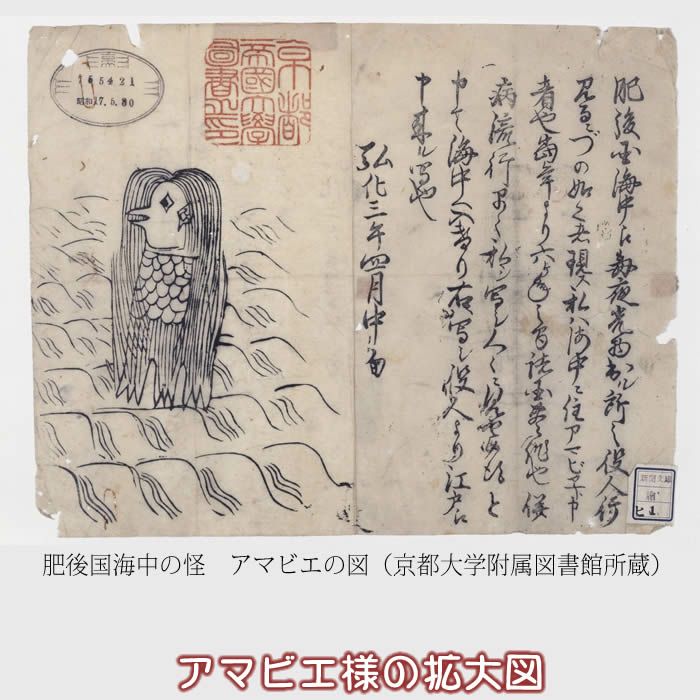 肥後国海中江毎夜光物出ル所之役人行
見るニづの如く者現ス私ハ海中ニ住アマビヱト申
者也當年より六ヶ年之間諸国豊作也併
病流行早々私シ写シ人々ニ見せ候得と
申て海中へ入けり右写シ役人より江戸江
申来ル写也
弘化三年四月中旬
京都
帝國大學
圖書之印
165421
昭和17.5.30
肥後国海中の怪　アマビエの図（京都大学附属図書館所蔵）
アマビエ様の拡大図